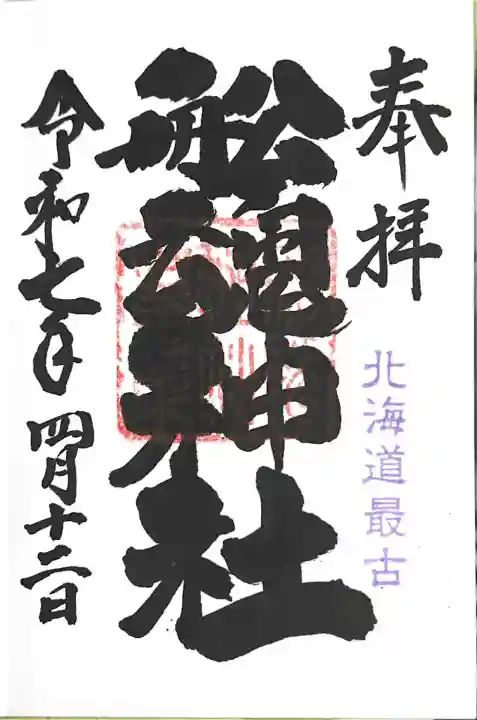 奉拝
北海道最古
船魂神社
令和七年四月十二日